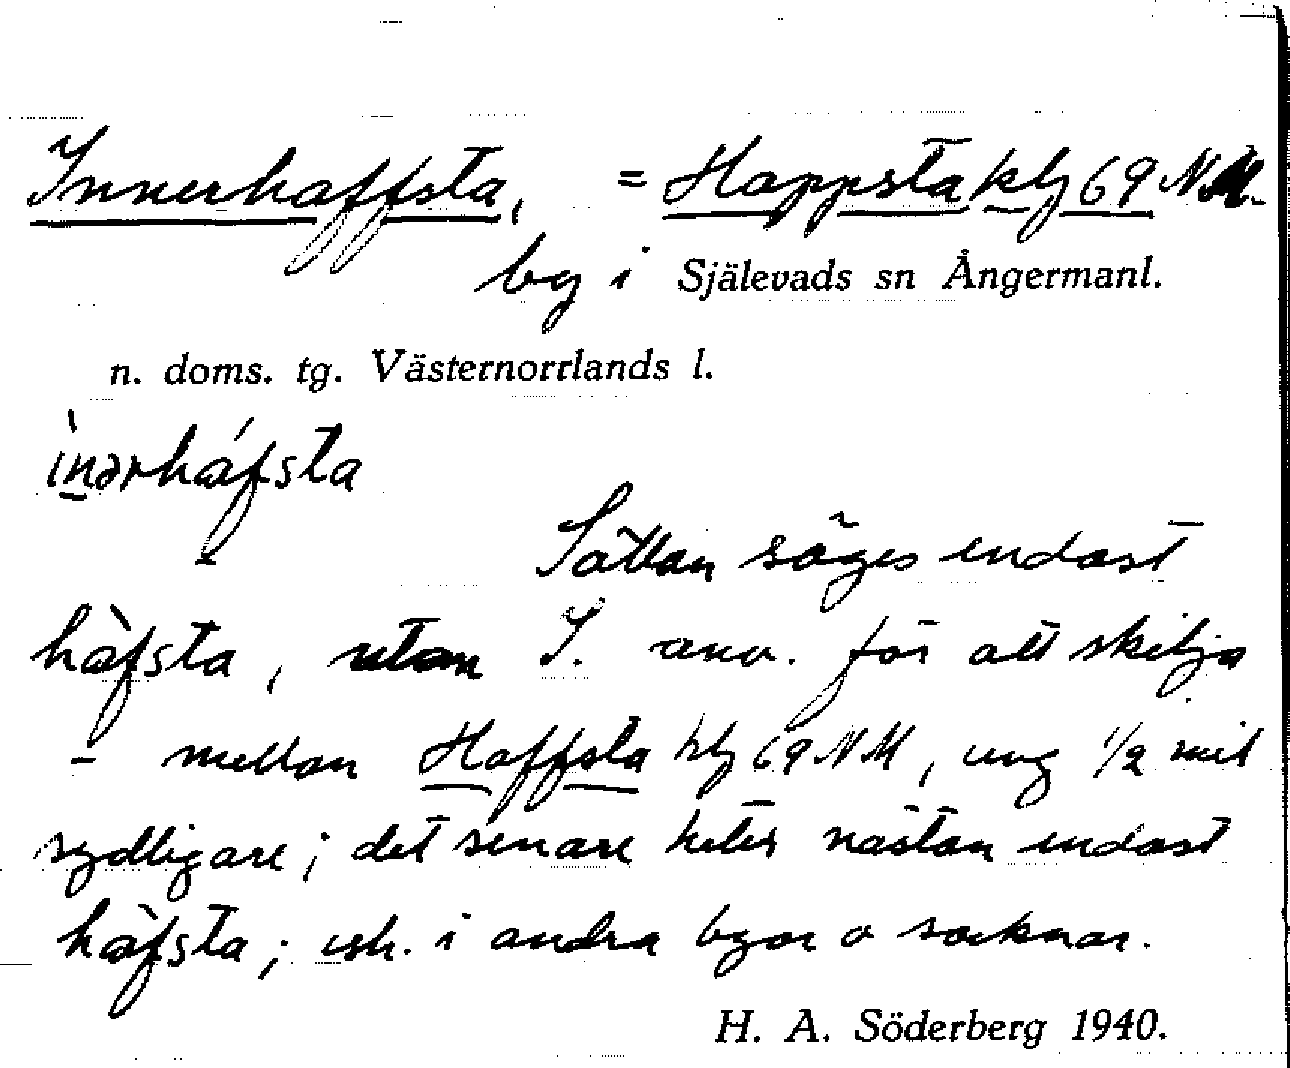 Innerhaffsta, = Happsta kbl 69 NM.
by i Själevads sn Ångermanl.
n. doms. tg. Västernorrlands l.
ìnərháfsta
Sällan säges endast
hàfsta, utan I. anv. för att skilja
mellan Haffsta kbl 69 NM, ung 1/2 mil
sydligare; det senare heter nästan endast
hàfsta; isht. i andra byar o socknar.
H. A. Söderberg 1940.